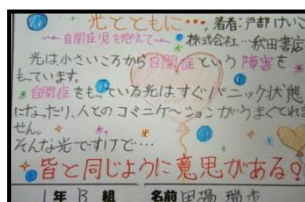 光とともに… 著者:戸部けいこ
～自閉症児を抱えて～ 株式会社…秋田書店
光は小さいころから自閉症という障害を
もっています。
自閉症をもっている光はすぐパニック状態
になったり、人とのコミニケーションがうまくとれま
せん。
そんな光ですけど…
皆と同じように意思がある!
1年 B 組 名前 田場